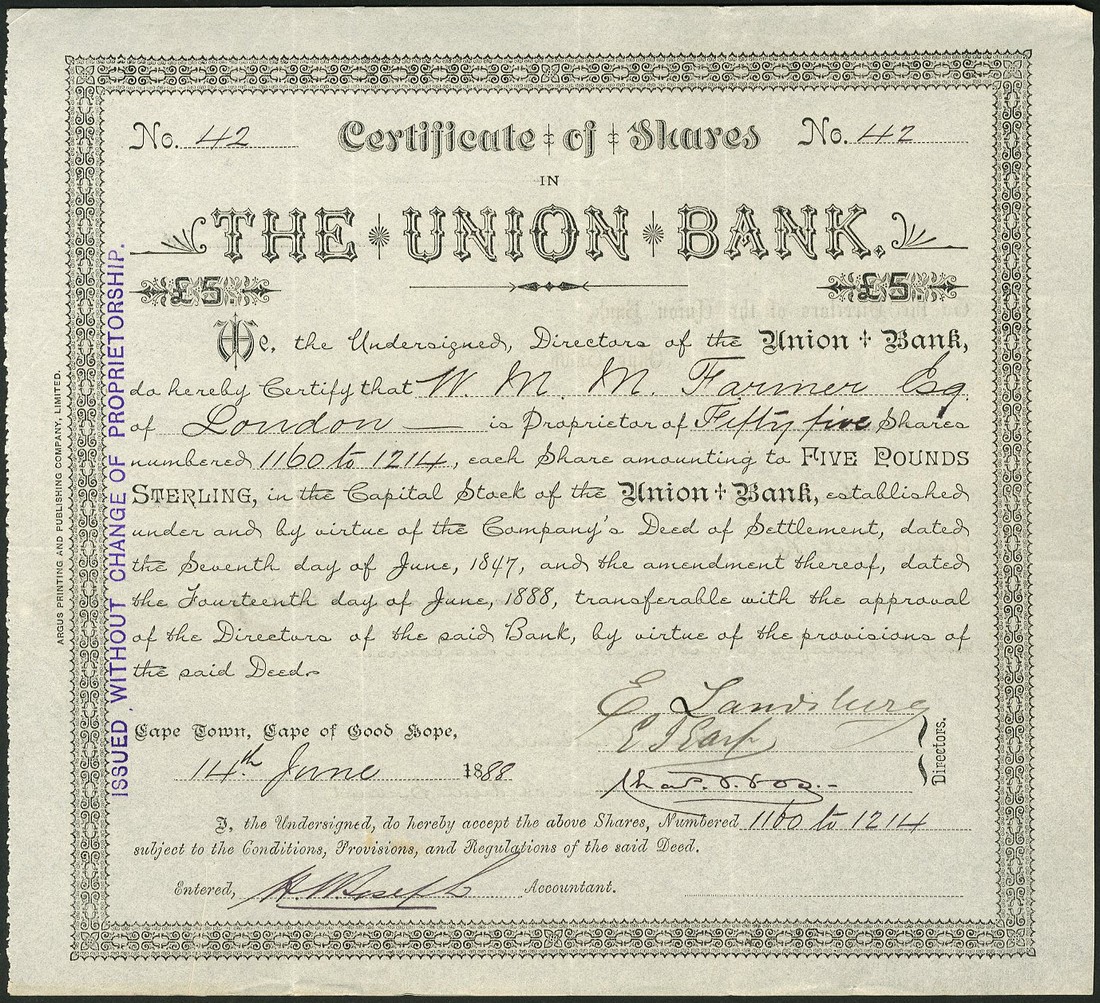 No. 42 Certificate of Shares No. 42
IN
THE UNION BANK.
£5. £5.
We, the Undersigned, Directors of the Union Bank,
do hereby Certify that W. M. M. Farmer Esq
of London — is Proprietor of Fifty five Shares
numbered 1160 to 1214, each Share amounting to FIVE POUNDS
STERLING, in the Capital Stock of the Union Bank, established
under and by virtue of the Company's Deed of Settlement, dated
the Seventh day of June, 1847, and the amendment thereof, dated
the Fourteenth day of June, 1888, transferable with the approval
of the Directors of the said Bank, by virtue of the provisions of
the said Deed.
E. Landsburg
Cape Town, Cape of Good Hope,
14th June 1888
Directors.
I, the Undersigned, do hereby accept the above Shares, Numbered 1160 to 1214
subject to the Conditions, Provisions, and Regulations of the said Deed.
Entered, Accountant.
ISSUED WITHOUT CHANGE OF PROPRIETORSHIP.
ARGUS PRINTING AND PUBLISHING COMPANY, LIMITED.